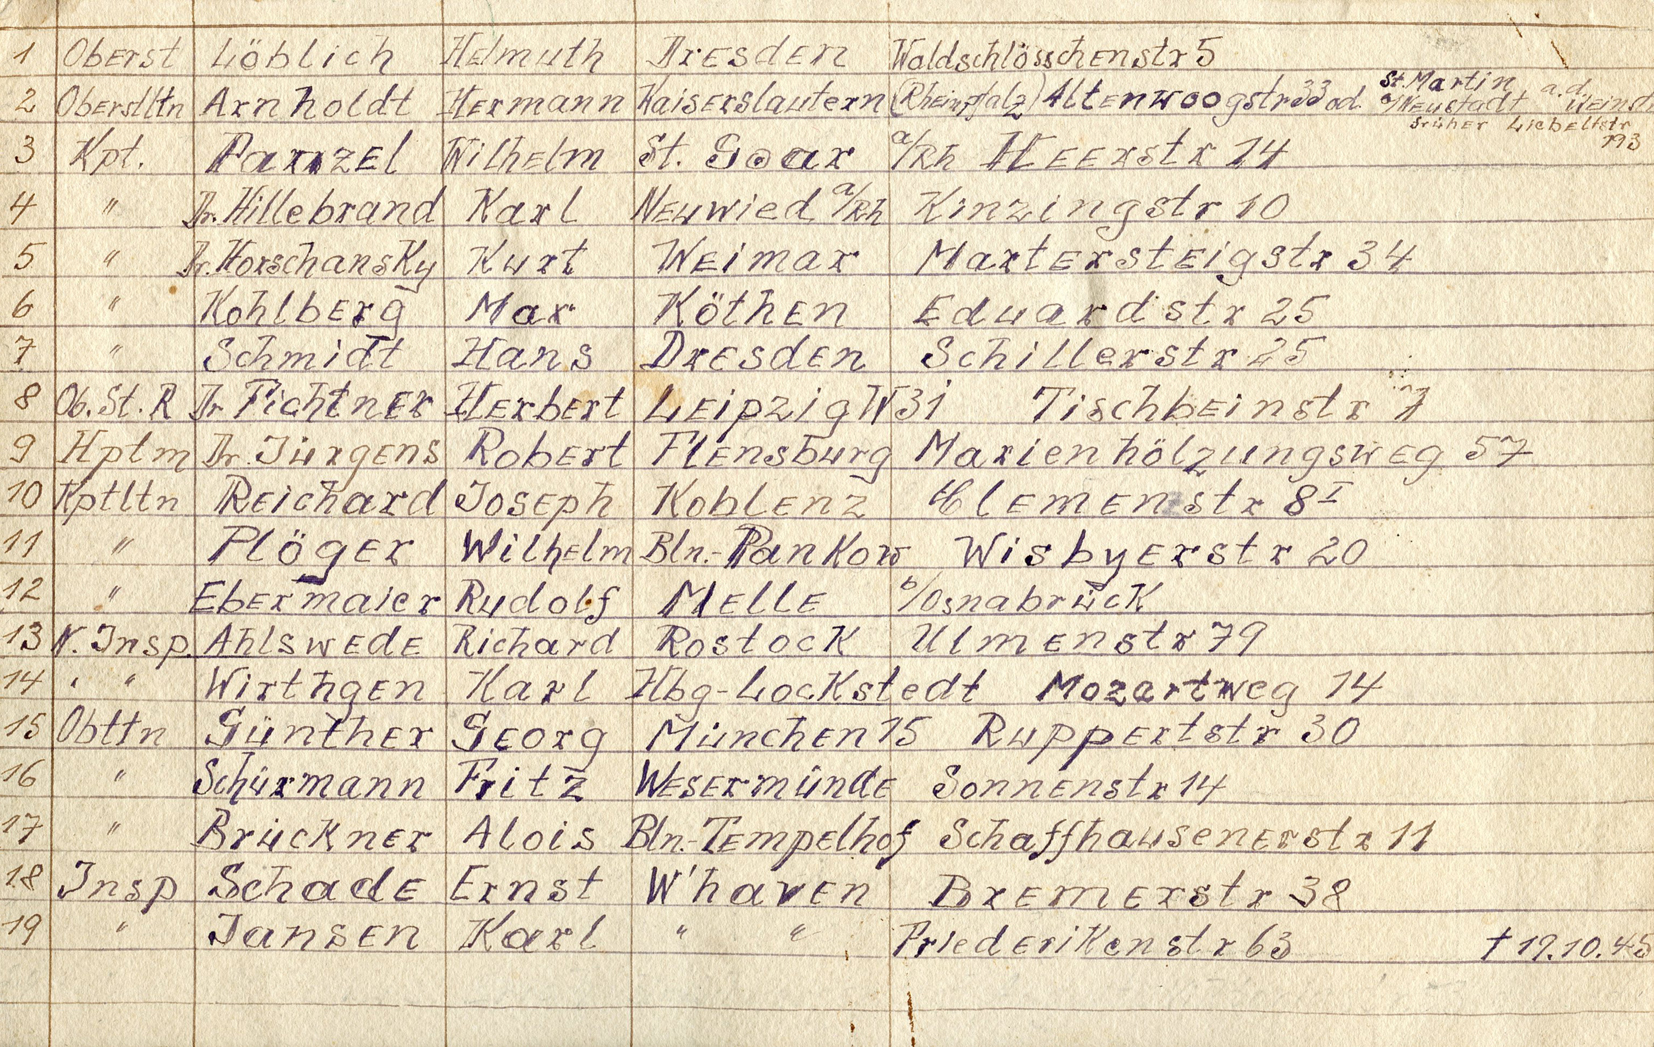 1 Oberst Löblich Helmuth Dresden Waldschlösschenstr 5
2 Oberstltn Arnholdt Hermann Kaiserslautern (Rheinpfalz) Altenwoogstr 33 od. St. Martin a.d.
a/Neustadt Weinstr
früher Liebeltstr
193
3 Kpt. Panzel Wilhelm St. Goar a/Rh Heerstr 14
4 " Dr. Hillebrand Karl Neuwied a/Rh Kinzingstr 10
5 " Dr. Horschansky Kurt Weimar Martersteigstr 34
6 " Kohlberg Max Köthen Eduardstr 25
7 " Schmidt Hans Dresden Schillerstr 25
8 Ob. St. R Dr Fichtner Herbert Leipzig W31 Tischbeinstr 7
9 Hptm Dr. Jürgens Robert Flensburg Marienhölzungsweg 57
10 Kptltn Reichard Joseph Koblenz Clemenstr 8 I
11 " Plöger Wilhelm Bln.-Pankow Wisbyerstr 20
12 " Ebermaier Rudolf Melle b/Osnabrück
13 N. Insp. Ahlswede Richard Rostock Ulmenstr 79
14 " " Wirthgen Karl Hbg-Lockstedt Mozartweg 14
15 Obltn Günther Georg München 15 Ruppertstr 30
16 " Schürmann Fritz Wesermünde Sonnenstr 14
17 " Brückner Alois Bln.-Tempelhof Schaffhausenerstr 11
18 Insp Schade Ernst W'haven Bremerstr 38
19 " Jansen Karl " " Friederikenstr 63 † 19.10.45